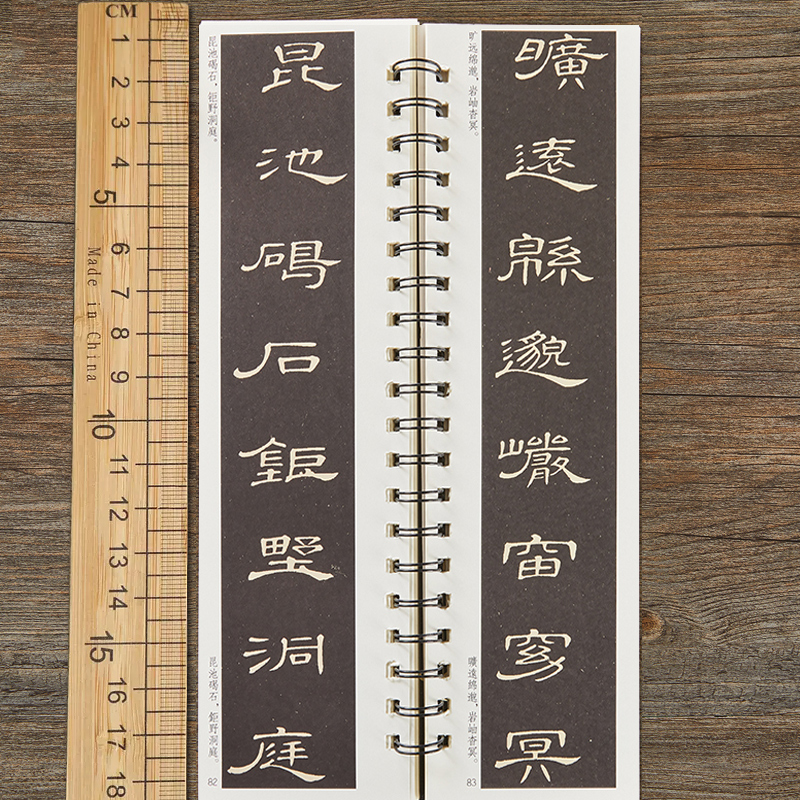 CM
1
2
3
4
5
6
7
8
9
10
11
12
13
14
15
16
17
18
Made in China
旷远绵邈，岩岫杳冥。
曠遠緜邈巖宙窈冥
曠遠綿邈，岩岫杳冥。
83
昆池碣石，钜野洞庭。
昆池碣石鉅野洞庭
昆池碣石，鉅野洞庭。
82